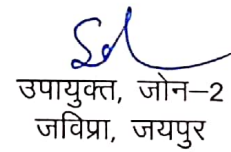 उपायुक्त, जोन–2
जविप्रा, जयपुर